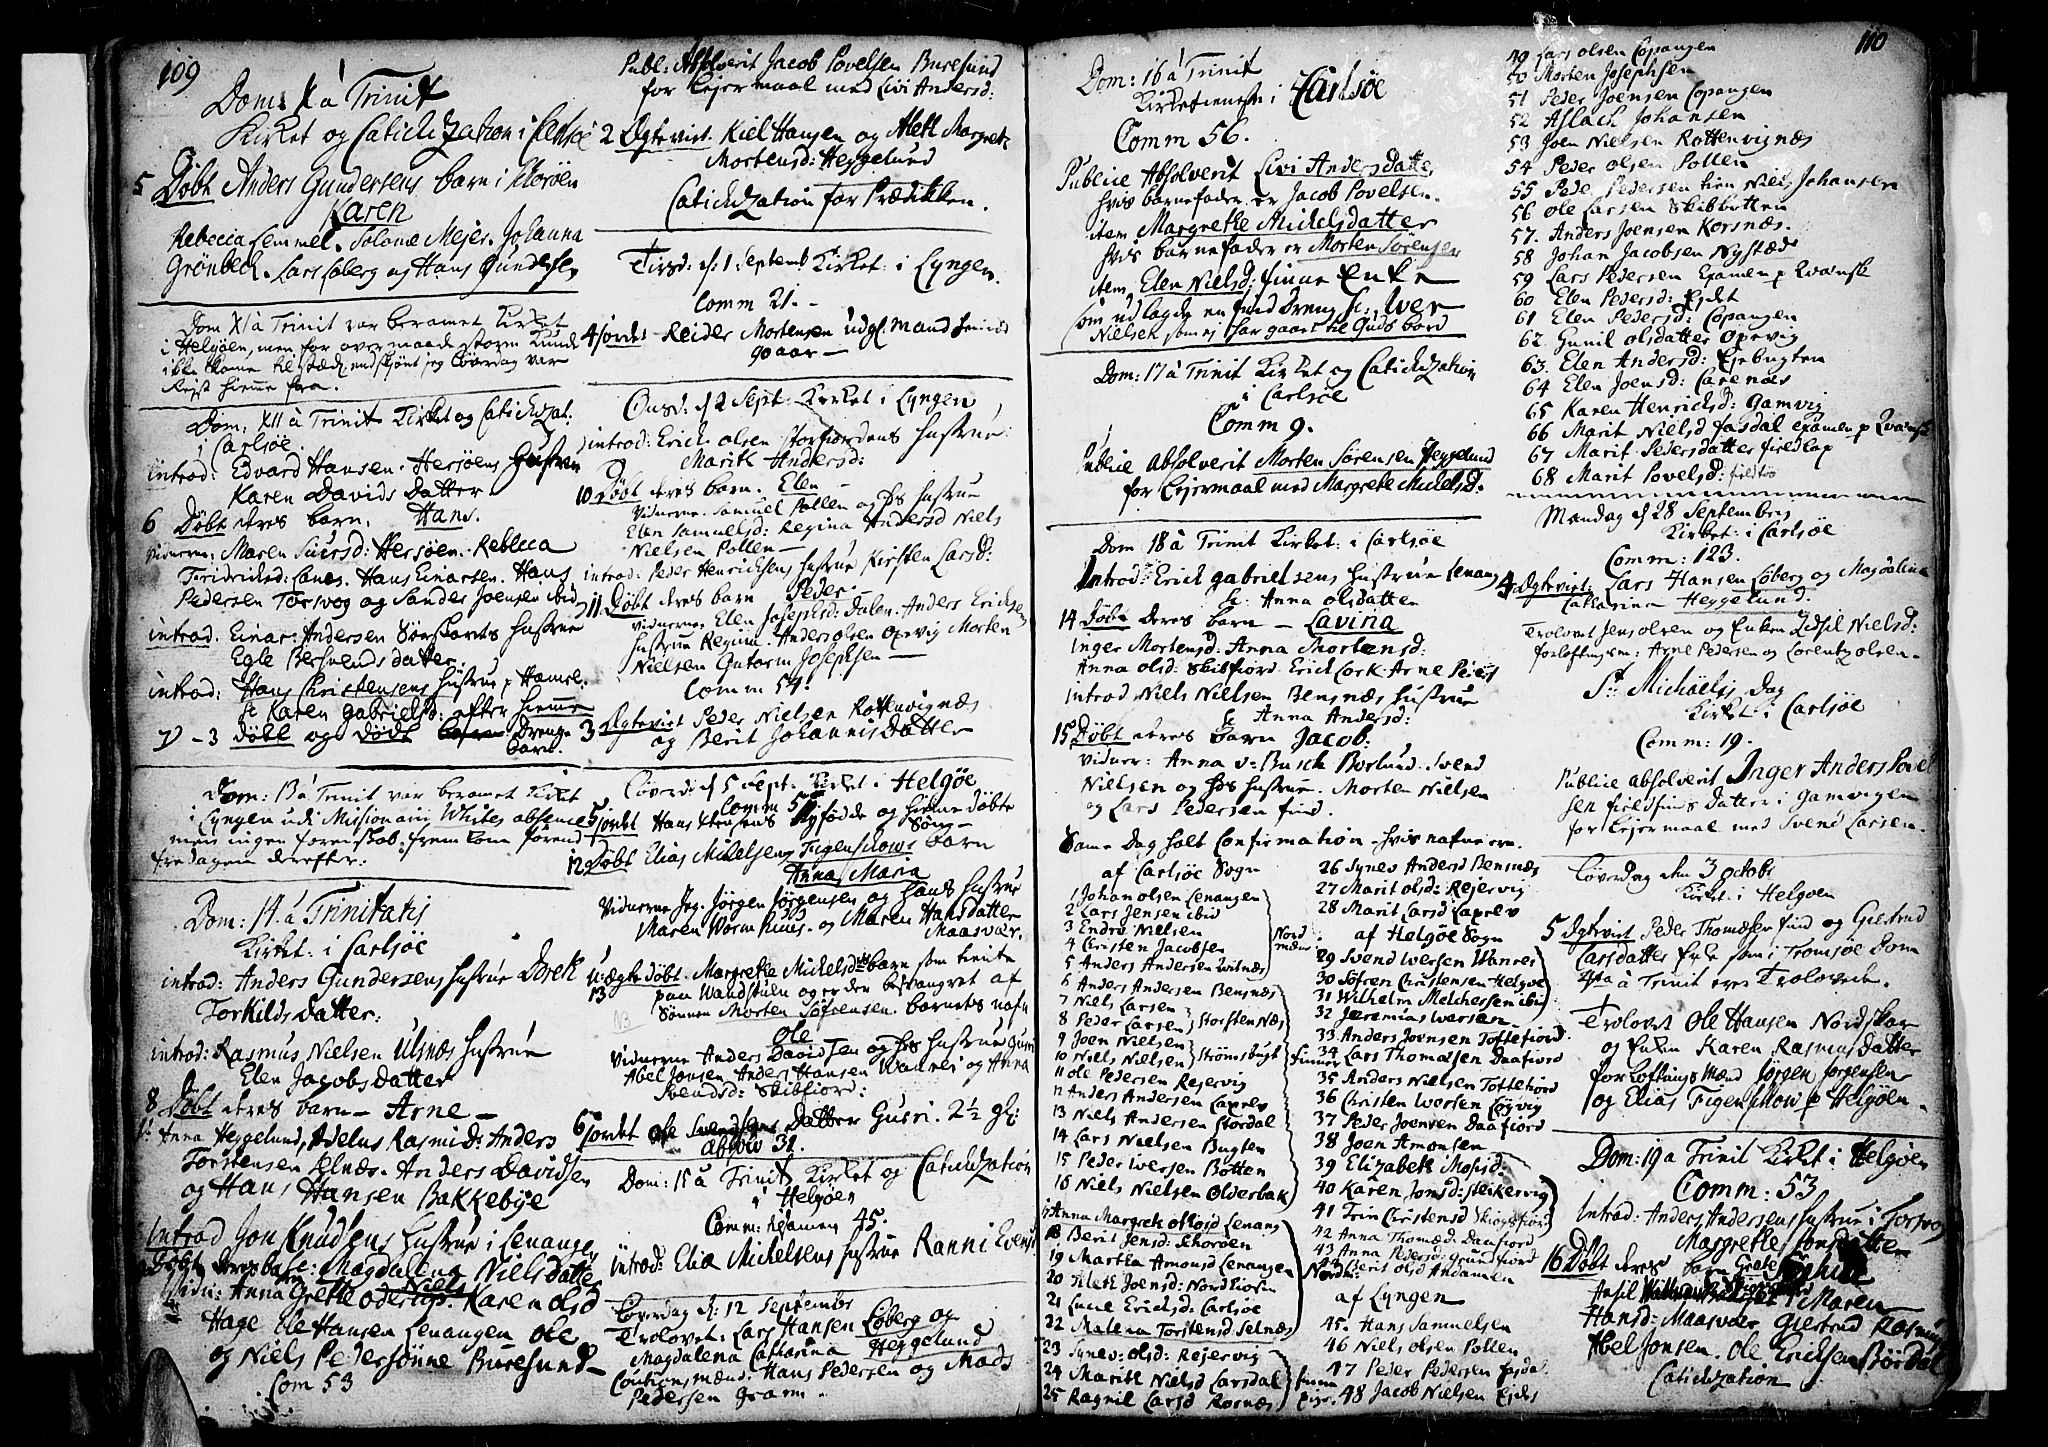 109
Dom: X à Trinit
Kirket og Catichization i Carlsøe
5 Døbt Anders Gundersens barn i Schorøen
Karen
Rebecca Lemmel. Solomæ Mejer. Johanna
Grönbech. Lars Loberg og Hans Gundersen
Dom XI à Trinit var beramet Kirket
i Helgøen, men for overmaade storm kunde
ikke komme til stæde, endskjønt jeg Løverdag var
Rejst hiemme fra.
Dom: XII à Trinit Kirket og Catichizat:
i Carlsøe
introd: Edvard Hansen Hersøens Hustru
Karen Davids Datter
6 Døbt deres barn. Hans.
Vidnerne: Maren Siursd: Hersøen. Rebecca
Fridrichsd: Hans Einarsen. Hans
Pedersen Torsvog og Sander Joensen ibid
introd. Einar Andersen Sörskarets hustrue
Egle Berhends datter
introd: Hans Christensens hustrue
Karen Gabrielsd: efter hiemme
7 - 3 døbt og dødt Drenge
barn.
Dom: 13 à Trinit var beramet Kirket
i Lyngen udi Missionair Whites absence
men ingen forenskab frem kom förend
fredagen derefter:
Dom: 14 à Trinitatis
Kirket: i Carlsøe
introd: Anders Gundersens hustrue Doreth
Torkilds datter:
introd: Rasmus Nielsen Ulsnæs hustrue
Elen Jacobs datter
8 Døbt deres barn - Arne -
Anna Heggelund, Adelus Rasmisd: Anders
Torstensen Selnæs. Anders Davidsen
og Hans Hansen Bakkebye
Introd Jon Knudsens hustrue i Lenangen
Magdalena Nielsdatter
Døbt deres barn Niels
Vidn: Anna Grethe Karen Olsd
Hage Ele Hansen Lenangen Ole
og Niels Pedersønne Buresund
Com 53
Publ: Absolverit Jacob Povelsen Buresund
for Lejermaal med Livi Andersd:
2 Ægteviet. Kiel Hansen og Aleth Margreth
Mortensd: Heggelund
Catichization for Prædikken.
Tirsd: d: 1 Septemb Kirket: i Lyngen
Comm 21. -
4 jordet - Reider Mortensen udgl. mand
90 aar -
Onsd: d 2 Sept: Kirket i Lyngen
introd: Erich Olsen Storfiordens hustrue:
Marith Andersd:
10 Døbt deres barn. Elen -
Vidnerne. Samuel Pollen og hs hustrue
Elen Samuelsd: Regina Andersd Niels
Nielsen Pollen -
introd: Peder Henrichsens hustrue Kirsten Larsd:
11 Døbt deres barn Peder -
Vidnerne Elen Josephsd: Dalen. Anders Erichsen
hustrue Regina. Anders Olsen Opevig Morten
Nielsen Gutorm Josephsen -
Comm 54:
3 Ægteviet Peder Nielsen Rottenvignæs
og Berit Johannis Datter
Løverd: d 5 Sept: Kirket i Helgøe
Comm 57
5 jordet Hans Nyfødde og hiemme døbte
Søn -
12 Døbt Elias Michelsen Figenschows barn
Anna Maria
Vidnerne Jeg. Jørgen Jørgensen og hans hustrue
Maren Worm Huus. og Maren Hans datter
Maasvær.
U: ægte døbt. Margrethe Michelsd barn som tiente
13 paa Wandstuen og er der besvangret af
Sönnen Morten Søfrensen. barnets nafn
Ole
Vidnerne Anders Davidsen og hs hustrue Guri
Abel Jonsen Anders Hansen Wannei og Anna
Svendsd: Skibfiord:
6 jordet Ole Svendsens Datter Guri. 2½ gl:
absolv 31.
Dom: 15 à Trinit Kirket og Catichization
i Helgøen
Comm: 45.
introd: Eliæ Michelsens hustrue Ranni Evensd
Løverdag d: 12 Septembr
Trolovet: Lars Hansen Loberg og
Magdalena Catharina Heggelund
Coutionsmænd: Hans Pedersen og Mads
Pedersen Gram -
110
Dom: 16 à Trinit
Kirketieneste i Carlsøe
Comm 56.
Publice Absolverit Livi Andersdatter
hvis barnefader er Jacob Povelsen.
item Margrethe Michelsdatter
hvis barnefader er Morten Sörensen
item Elen Nielsd: finne Enke
som udlagde en find Dreng Iwer
Nielsen som ej har gaaet til Guds bord
Dom: 17 à Trinit Kirket og Catichization
i Carlsøe
Comm 9.
Publice absolverit Morten Sörensen Heggelund
for Lejermaal med Margrethe Michelsd:
Dom 18 à Trinit Kirket: i Carlsøe
Introd: Erich Gabrielsens hustrue Lenang
Anna Olsdatter
14 Døbt deres barn - Lavina
Inger Mortensd: Anna Mortensd:
Anna Olsd: Skibfiord. Erich Lark. Arne Peders
introd Niels Nielsen Bensnæs hustrue
Anna Andersd:
15 Døbt deres barn Jacob:
Vidner: Anna v: Busch Borlund. Svend
Nielsen og hs hustrue. Morten Nielsen
og Lars Pedersen find.
Samme Dag holt Confirmation hvis nafne ere.
af Carlsöe Sogn
1 Johan Olsen Lenangen
2 Lars Jensen ibid
3 Endre Nielsen
4 Christen Jacobsen
5 Anders Andersen Witnæs
Nord
mænd.
6 Anders Andersen Bensnæs
7 Niels Larsen
8 Peder Larsen Storstennæs
9 Joen Nielsen
10 Niels Nielsen Strömsbugt
11 Ole Pedersen Rejervig
12 Anders Andersen
13 Niels Andersen Stordal
14 Lars Nielsen Bugten
15 Peder Iwersen Botten
16 Niels Nielsen Olderbak
Finner
17 Anna Margreth Lenang
18 Berit Jensd: Schorøen
19 Martha Amonsd Lenangen
20 Aleth Joensd: Nordeidsen
21 Lucie Erichsd: Carlsøe
22 Malena Torstensd Selnæs
Nordm:
23 Synev: Olsd: Rejervig
24 Marith Nielsd Larsdal
25 Ragnil Larsd Rosnæs
finne
Piger.
26 Synev Andersd Bensnæs
27 Marit Olsd: Rejervig
28 Marit Larsd
af Helgøe Sogn
29 Svend Iwersen Wanrei
30 Søfren Christensen Helgøe
31 Wilhelm Melchersen ibid
32 Jeremias Iwersen
33 Anders Joensen Tottefiord
34 Lars Thomæsen Daafiord
35 Anders Nielsen Tottefiord
36 Christen Iwersen
37 Peder Joensen Daafiord
38 Joen Amonsen
39 Elizabeth Mosisd:
40 Karen Jonsd: Steikervig
41 Trin Christensd Skiegfiord
42 Anna Thomæsd: Daafiord
43 Anna Pedersd: Grundfiord
44 Berit Olsd Andamen
af Lyngen
45. Hans Samuelsen
46 Niels Olsen Pollen
47 Peder Pedersen
48 Jacob Nielsen Ejdet
49 Lars Olsen Copangen
50 Morten Josephsen
51 Peder Joensen Copangen
52 Aslach Johansen
53 Joen Nielsen Rottenvignæs
54 Peder Olsen Pollen
55 Peder Pedersen hiem Niels Johansen
56 Ole Larsen Skibbotten
57. Anders Joensen Korsnæs.
58 Johan Jacobsen Nystæd
59 Lars Pedersen Examen p Kvænsk
60 Elen Pedersd: Ejdet
61 Elen Pedersd: Copangen
62 Gunil Olsdatter Opevig
63. Elen Andersd:
64 Elen Joensd: Carenæs
65 Karen Henrichsd: Gamvig
66 Marit Nielsd fasdal examen p Kvænsk
67 Marit Pedersdatter fieldlap
68 Marit Povelsd:
Mandag d 28 Septembris
Kirket: i Carlsøe
Comm: 123.
4 Ægteviet: Lars Hansen Loberg og Magdalena
Catharina Heggelund
Trolovet Jens Olsen og Enken Zidsil Nielsd:
forloftningsm: Arne Pedersen og Lorentz Olsen.
St: Michaëlis Dag
Kirket i Carlsøe
Comm: 19.
Publice absolverit Inger Anders Povel
sen fieldfins datter i Gamvigen
for Lejermaal med Svend Larsen.
Løverdag den 3 octobr
Kirket: i Helgøen
5 Ægteviet Peder Thomæsen find og Giertrud
Larsdatter Enke som i Tromsøe Dom
4ta à Trinit ere Trolovede.
Trolovet Ole Hansen Nordskar
og Enken Karen Rasmusdatter
forloftnings Mænd Jørgen Jørgensen
og Elias Figenschow p Helgøen.
Dom: 19 à Trinit Kirket i Helgøen
Comm: 53
Introd: Anders Andersens hustrue i Torsvog
Margrethe Jonsdatter
16 Døbt deres barn Grete
Maren
Hansd: Maasvær Giertrud Rasmus
Abel Jonsen. Ole Erichsen Børdal
Catichization